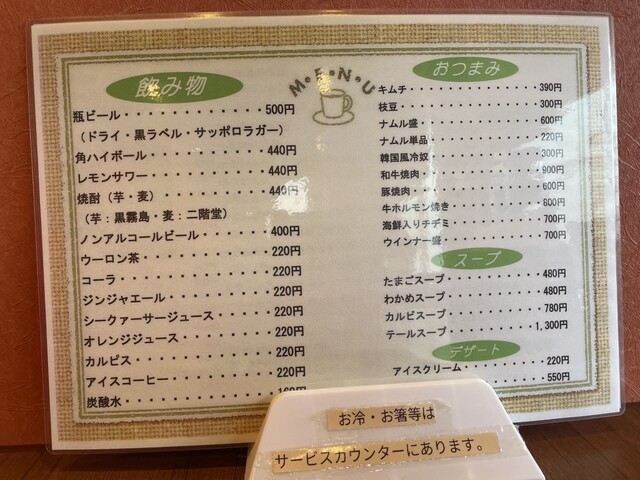 M・E・N・U
飲み物
瓶ビール・・・・・・・・・・・500円
（ドライ・黒ラベル・サッポロラガー）
角ハイボール・・・・・・・・・・440円
レモンサワー・・・・・・・・・・440円
焼酎（芋・麦）・・・・・・・・・440円
（芋：黒霧島・麦：二階堂）
ノンアルコールビール・・・・・・400円
ウーロン茶・・・・・・・・・・・220円
コーラ・・・・・・・・・・・・・220円
ジンジャエール・・・・・・・・・220円
シークァーサージュース・・・・・220円
オレンジジュース・・・・・・・・220円
カルピス・・・・・・・・・・・・220円
アイスコーヒー・・・・・・・・・220円
炭酸水・・・・・・・・・・・・・
おつまみ
キムチ・・・・・・・・・・・390円
枝豆・・・・・・・・・・・・300円
ナムル盛・・・・・・・・・・600円
ナムル単品・・・・・・・・・220円
韓国風冷奴・・・・・・・・・300円
和牛焼肉・・・・・・・・・・900円
豚焼肉・・・・・・・・・・・600円
牛ホルモン焼き・・・・・・・800円
海鮮入りチヂミ・・・・・・・700円
ウインナー盛・・・・・・・・700円
スープ
たまごスープ・・・・・・・・480円
わかめスープ・・・・・・・・480円
カルビスープ・・・・・・・・780円
テールスープ・・・・・・・・1,300円
デザート
アイスクリーム・・・・・・・220円
550円
お冷・お箸等は
サービスカウンターにあります。